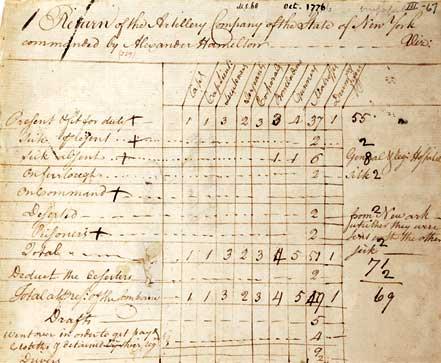 Oct. 1776. III-67
Return of the Artillery Company of the State of New York
commanded by Alexander Hamilton
Capt
Capt Lieut
Lieutenants
Sergeants
Corporals
Bombardiers
Gunners
Matrosses
Present & fit for duty + 1 1 3 2 3 3 4 37 1 55
Sick & present + 2 2
Sick absent + 1 1 6 General & Regt Hospital
8
On furlough 2 sick 2
On Command +
Deserted 2 from New ark
2 whether they were
Prisoners + 2 sent with the other
2 sick
Total 1 1 3 2 3 4 5 51 1 71
Deduct the deserters 2 2
Total of the company 1 1 3 2 3 4 5 49 1 69
Drafts 5
went over in order to get pay & 4
cloaths & detained
Drivers 8